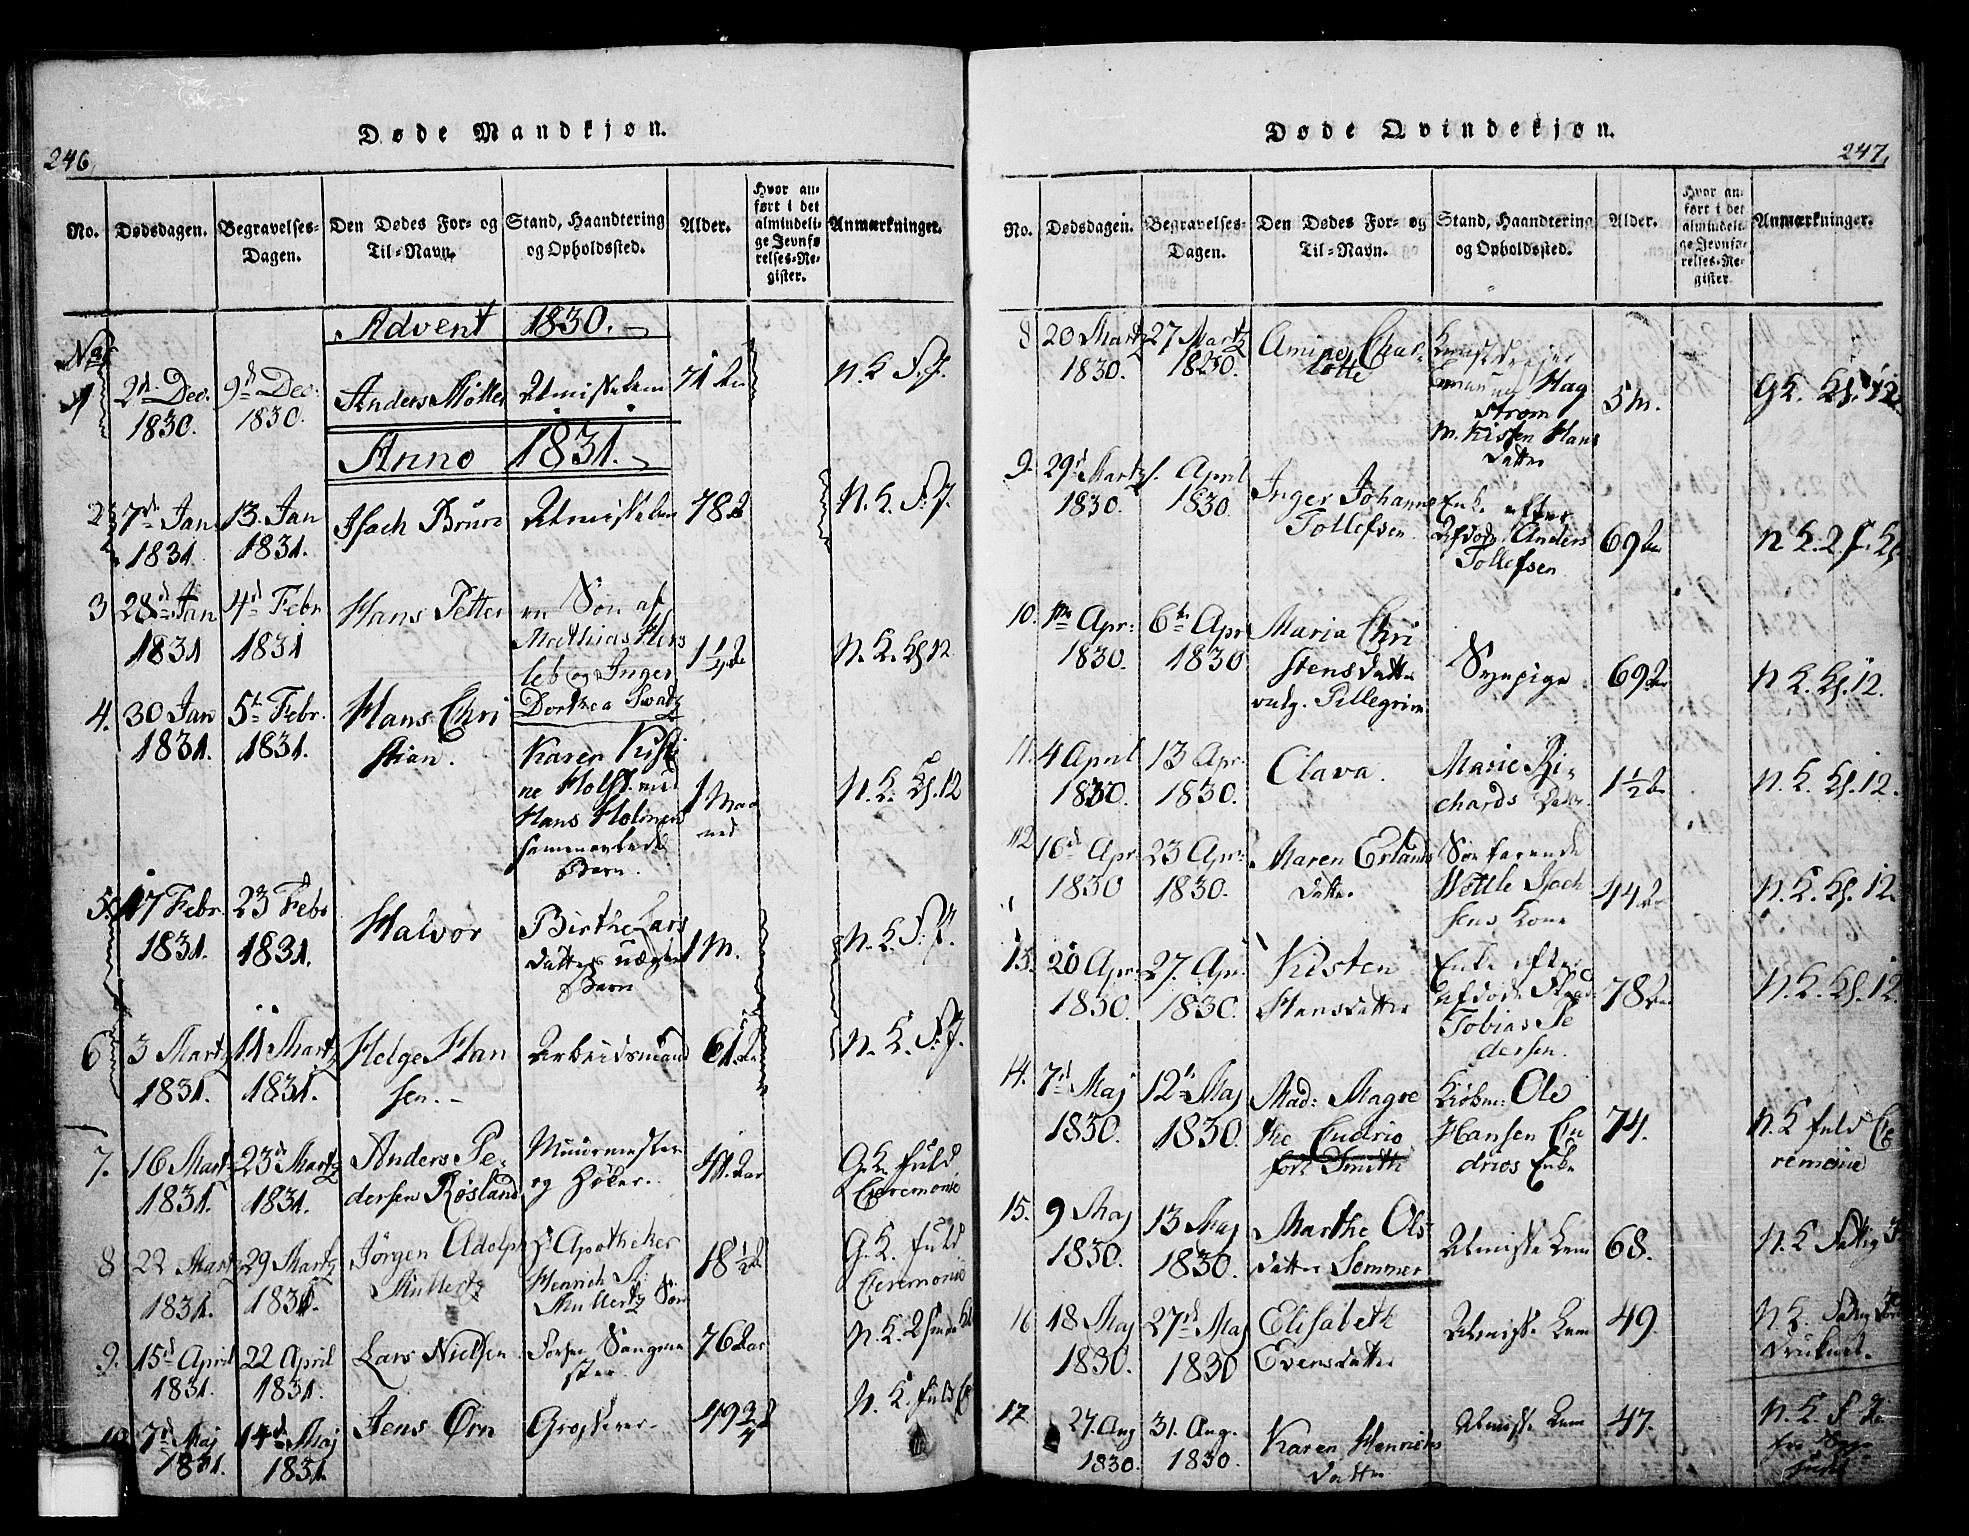 246.
Døde Mandkjøn.
No.
Dødsdagen.
Begravelses-
Dagen.
Den Dødes For- og
Til-Navn.
Stand, Haandtering
og Opholdssted.
Alder.
Hvor an-
ført i det
almindeli-
ge Jevnfø-
relses-Re-
gister.
Anmærkninger.
Advent 1830.
1
2d Dec.
1830.
9de Dec.
1830.
Anders Møller
Almisselem
71 Aar
N. K. F. J.
Anno 1831.
2
7de Jan
1831.
13. Jan
1831.
Isach Bruun
Almisselem
78 A
N. K. F. J.
3
28d Jan
1831
4d Febr
1831
Hans Petter
en Søn af
Mathias Hers
leb og Inger
Dorthea Svatz
1 1/4 A
N. K. Kl. 12
4.
30 Jan
1831.
5t Febr.
1831.
Hans Chri
stian.
Karen Kisti
ne Holst med
Hans Holmens
sammenavlede
Barn.
1 Maa
ned
N. K. Kl. 12
5.
17 Febr.
1831.
23 Febr
1831.
Halvor
Birthe Lars
Datters uægte
Barn
1 M.
N. K. F. J.
6
3 Martz
1831.
11 Martz
1831.
Helge Han
sen.
Arbeidsmand
61 A
N. K. F. J.
7.
16 Martz
1831.
23d Martz
1831.
Anders Pe-
dersen Røsland
Muurmester
og Høker.
41. Aar
G. K. fuld
Ceremonie
8
22 Martz
1831.
29 Martz
1831.
Jørgen Adolph
Mullertz
Hr Apotheker
Henrich A.
Mullertz Søn
18 1/2 A
G. K. fuld
Ceremonie
9.
15d April
1831.
22 April
1831.
Lars Nielsen
Forhen Sangme
ster.
76 Aar
N. K.
10
7d Maj
1831.
14d Maj
1831.
Jens Ørn
Grosserer
49 3/4
N. K. fuld C
247.
Døde Qvindekjøn.
No.
Dødsdagen.
Begravelses-
Dagen.
Den Dødes For- og
Til-Navn.
Stand, Haandtering
og Opholdssted.
Alder.
Hvor an-
ført i det
almindeli-
ge Jevnfø-
relses-Re-
gister.
Anmærkninger.
8
20 Martz
1830.
27 Martz
1830.
Amine Char-
lotte
Kunstdreier
Hag
strøm
M. Kisten Hans
Datter
5 M.
GK. Kl. 12.
9.
29d Martz
1830.
1. April
1830.
Inger Johanne
Tollefsen
Enke efter
Afdøde Anders
Tollefsen
69 Aar
N K. 2 f. Kl
10.
1ste Apr:
1830.
6te Apr
1830
Maria Chri
stensdatter
vulg. Pillegrim
Sypige
69 Aar
N K. Kl. 12.
11.
4 April
1830.
13 Apr.
1830.
Clava.
Marie Ri-
chards Datter.
1 1/2 A
N. K. Kl. 12.
12
16d Apr
1830
23 Apr:
1830.
Maren Erlands
Datter
Søefarende
Wottle Isach
sens Kone
44 A
N. K. Kl. 12.
13.
20 Apr.
1830.
27. Apr.
1830.
Kisten
Hansdatter
Enke efter
afdøde
Tobias Pe
dersen.
78 Aar
N. K. Kl. 12.
14.
7d Maj
1830.
12te Maj
1830.
Mad: Magre
the Cudrio
fød Smith
Kiøbm: Ole
Hansen Cu
drios Enke
74.
N. K fuld Ce
remonie
15.
9 Maj
1830.
13 Maj
1830.
Marthe Ols
datter Sommer
Almisse Lem
68.
N. K Fattig
16
18 Maj
1830.
27d Maj
1830
Elisabeth
Evensdatter
Almisse Lem
49.
N. K. Fattig
Druknet.
17
27. Aug
1830.
31. Aug.
1830.
Karen Henrichs
Datter
Almisse Lem
47.
N. K. F